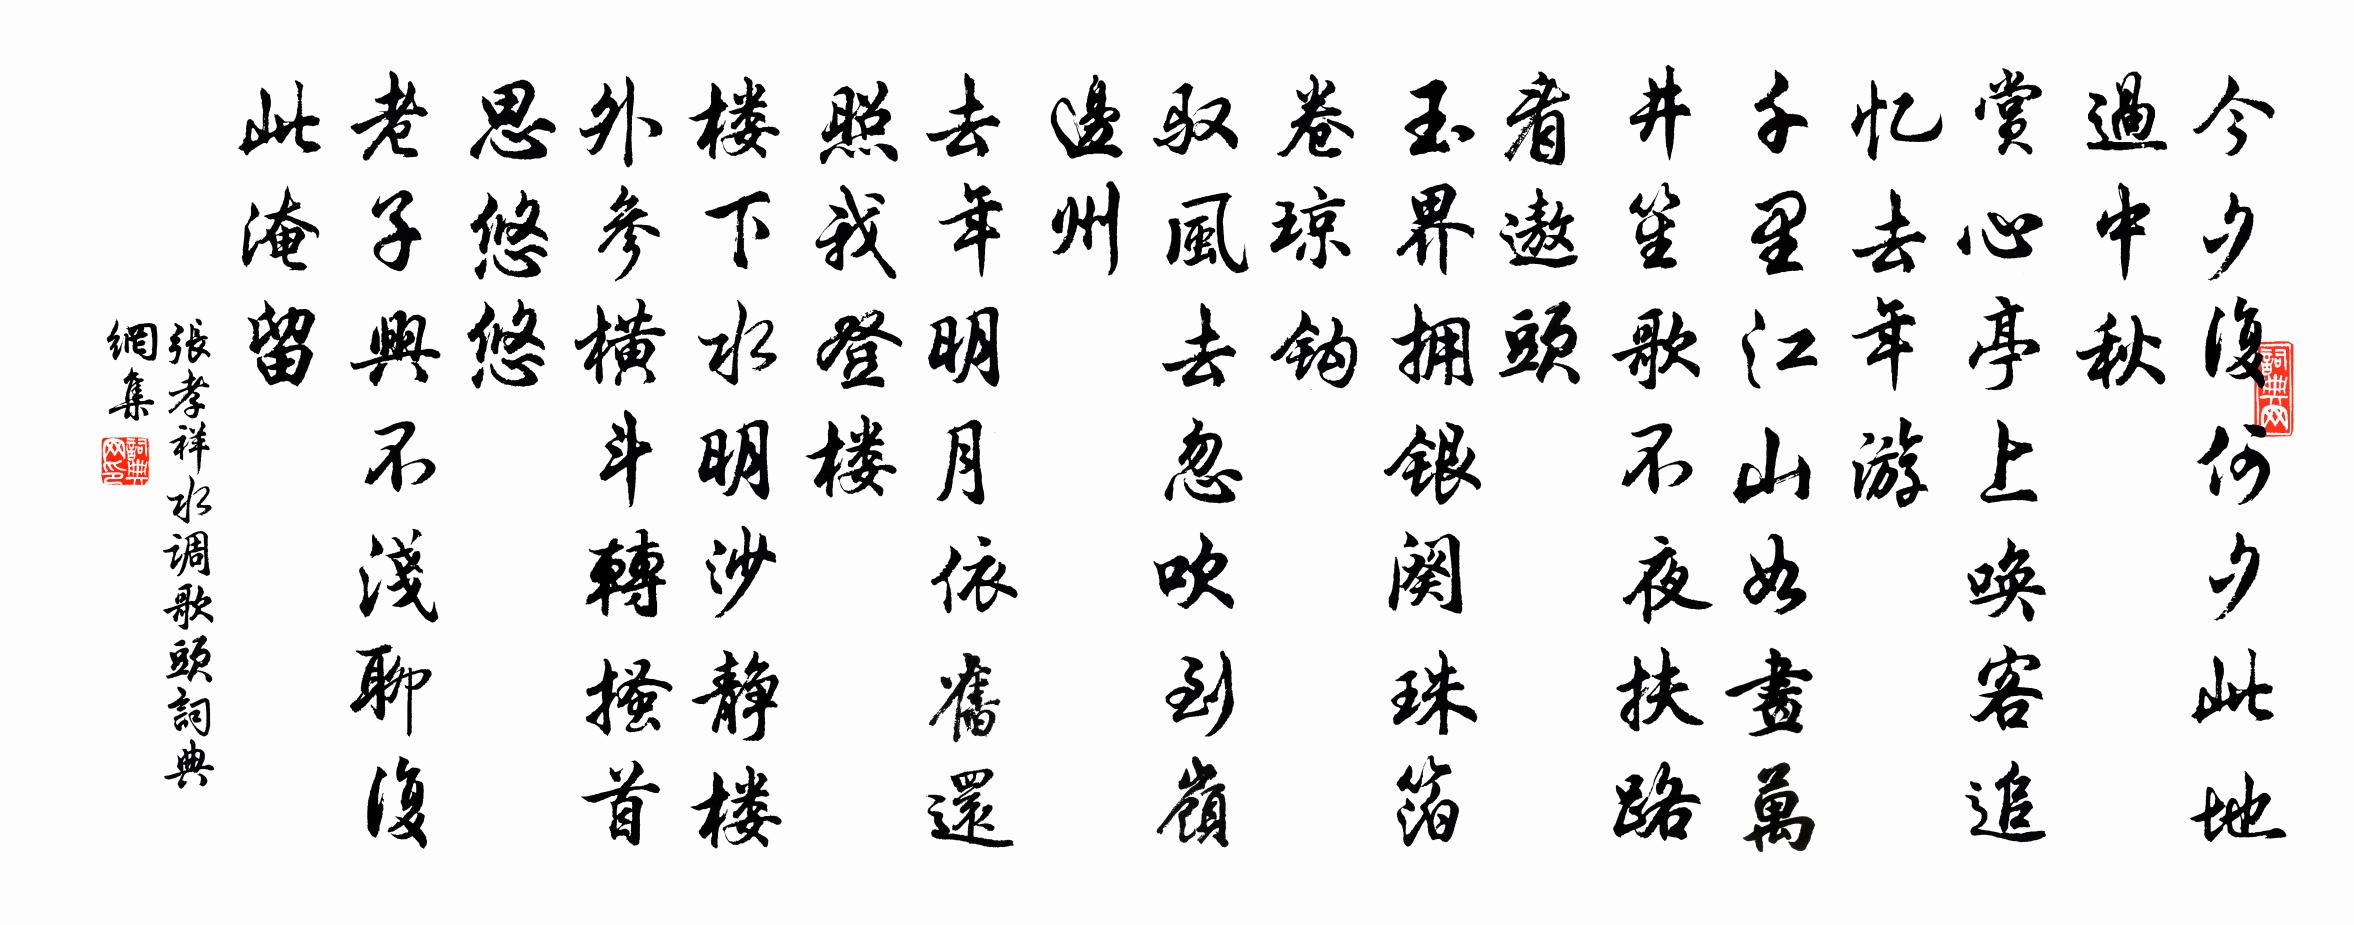 今夕復何夕此地
過中秋
賞心亭上唤客追
忆去年游
千里江山如畫萬
井笙歌不夜扶路
看遨頭
玉界拥銀阙珠箔
卷琼钩
驭風去忽吹到嶺
邊州
去年明月依舊還
照我登楼
楼下水明沙静楼
外參横斗轉搔首
思悠悠
老子興不淺聊復
此淹留
張孝祥水调歌頭詞典
網集
詞典网
詞典网印